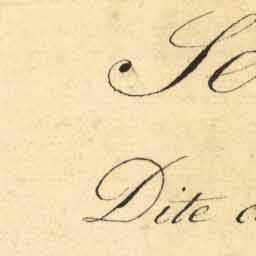 Se
Dite